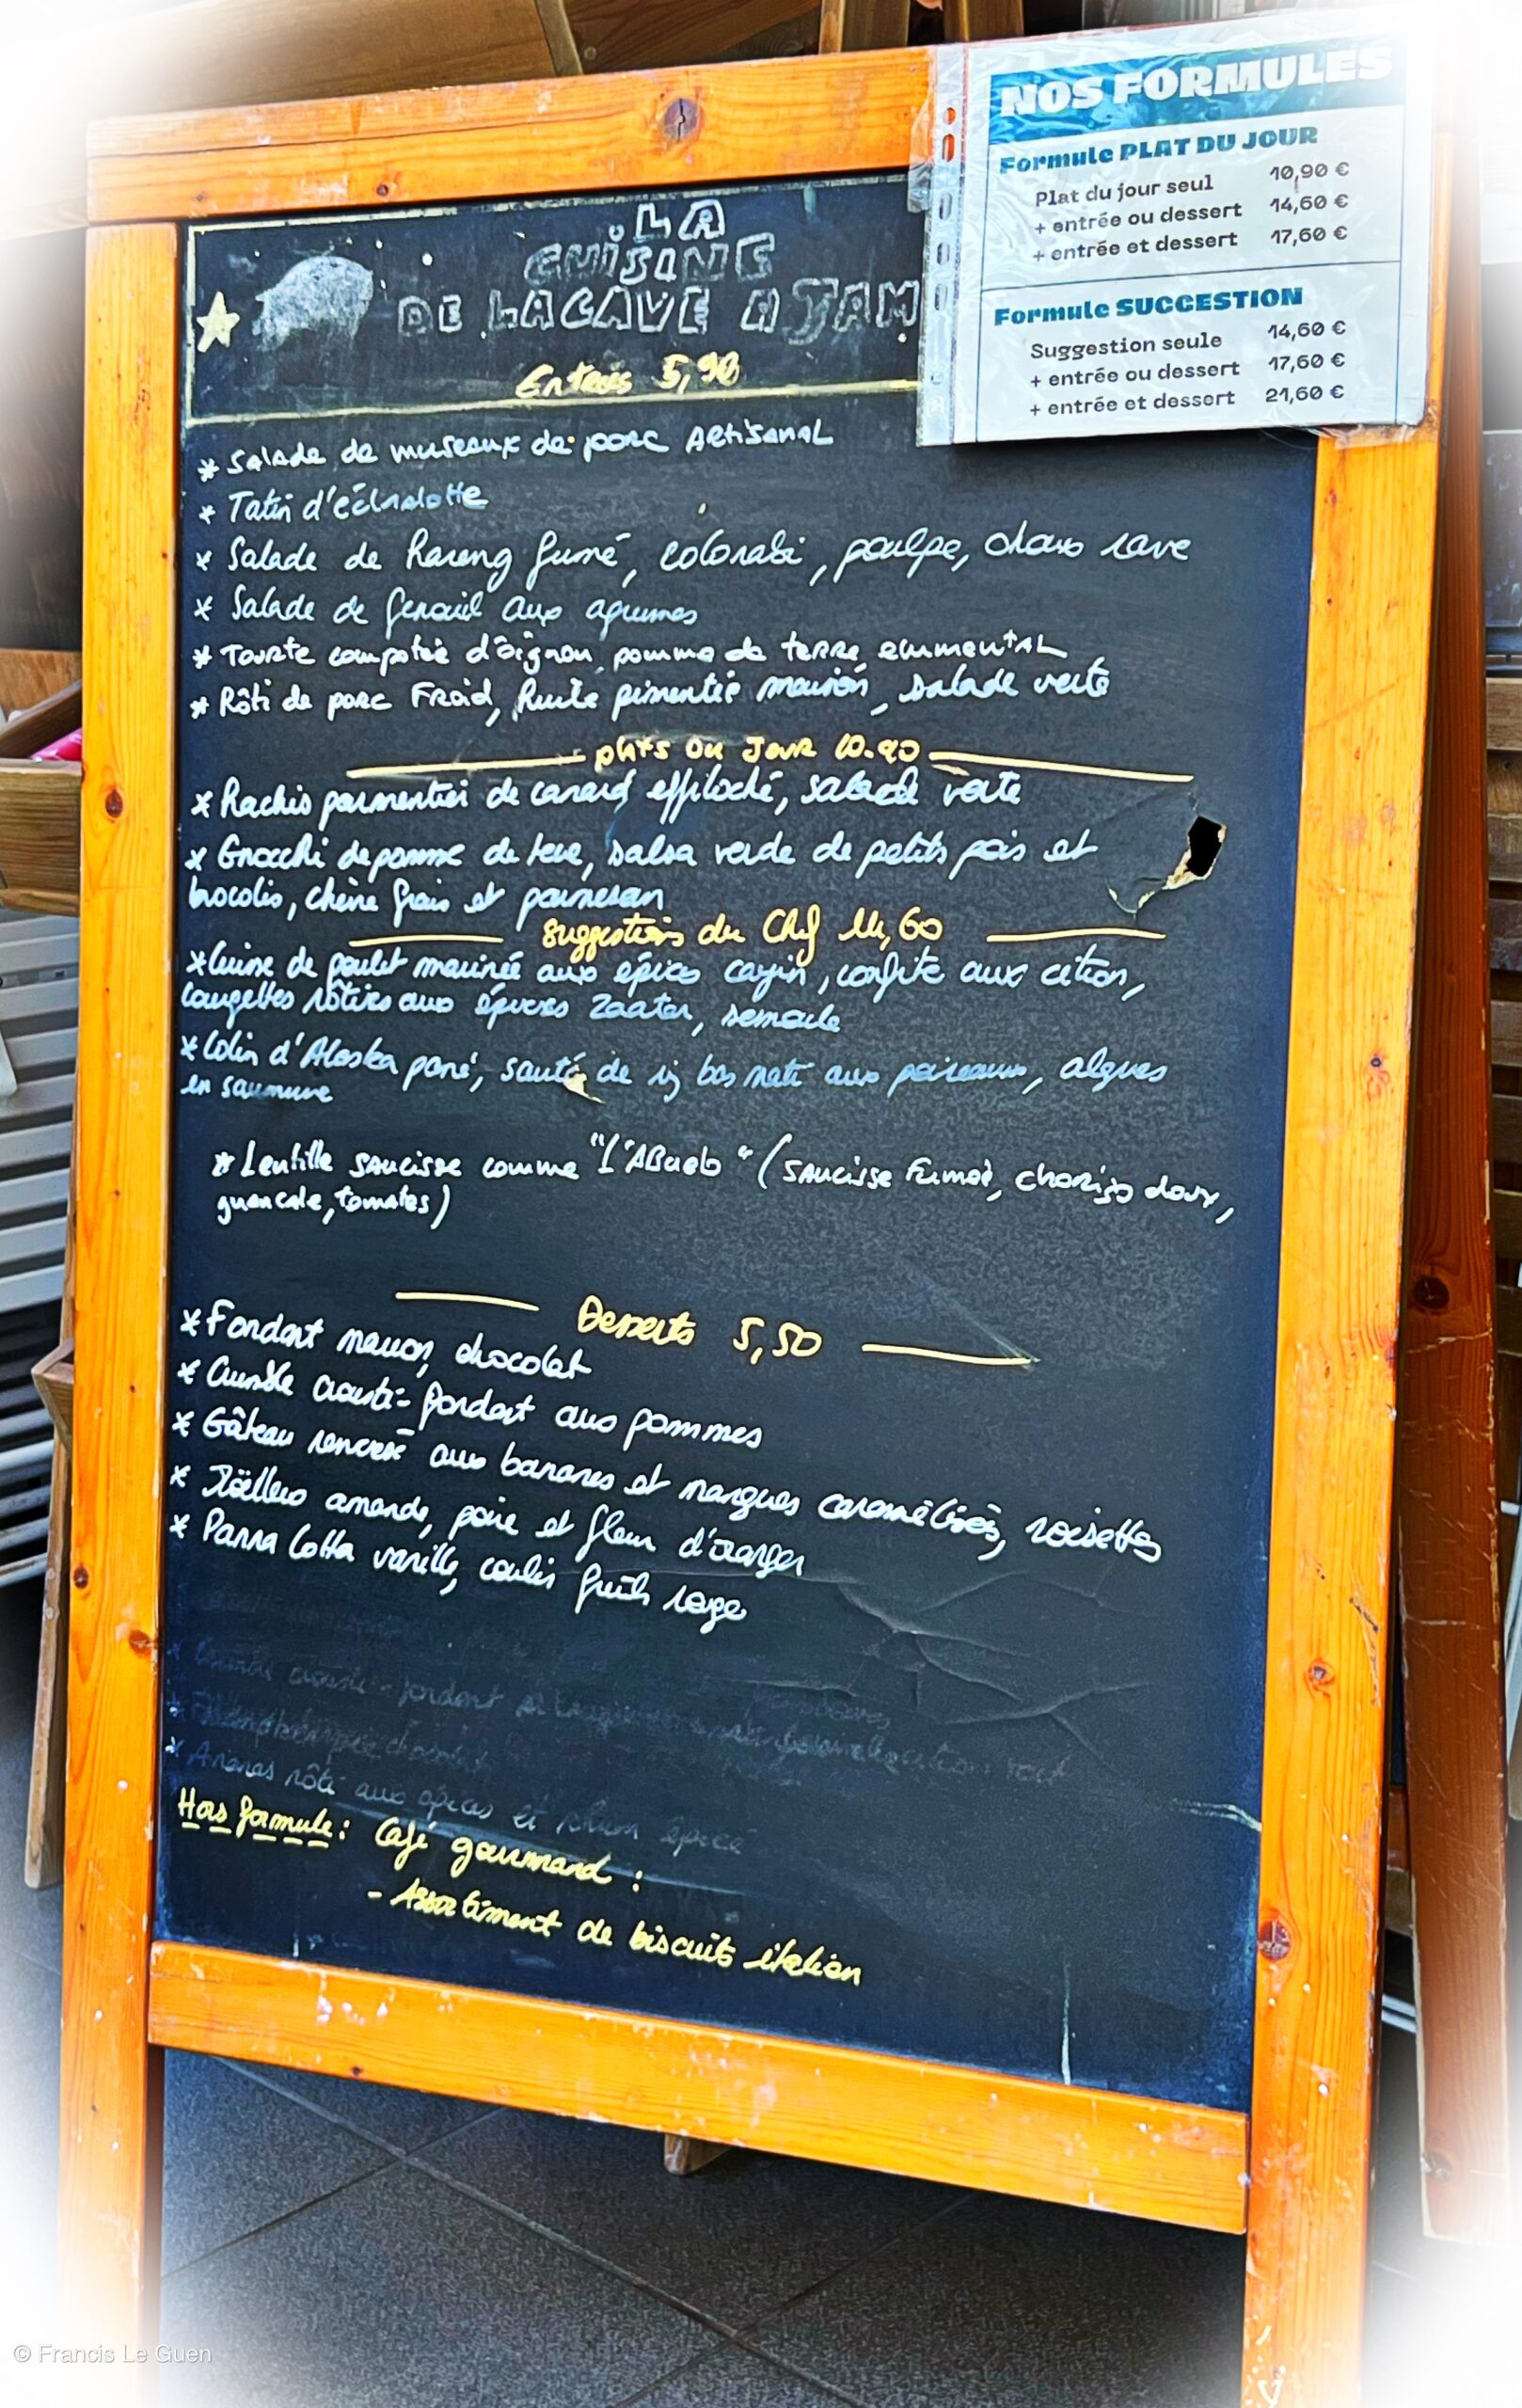 NOS FORMULES
Formule PLAT DU JOUR
Plat du jour seul 10,90 €
+ entrée ou dessert 14,60 €
+ entrée et dessert 17,60 €
Formule SUGGESTION
Suggestion seule 14,60 €
+ entrée ou dessert 17,60 €
+ entrée et dessert 21,60 €
LA
CUISINE
DE LA CAVE A JAM
Entrées 5,90
* Salade de museaux de porc Artisanal
* Tatin d'échalotte
* Salade de hareng fumé, colorabi, poulpe, choux rave
* Salade de fenouil aux agrumes
* Tourte compotée d'oignon, pomme de terre emmental
* Rôti de porc Froid, huile pimentée maison, salade verte
plats du jour 10.90
* Hachis parmentier de canard effiloché, salade verte
* Gnocchi de pomme de terre, salsa verde de petits pois et
brocolis, chèvre frais et parmesan
Suggestions du Chef 14,60
* Cuisse de poulet marinée aux épices cajun, confite aux citron,
courgettes rôties aux épices zaatar, semoule
* Colin d'Alaska pané, sauté de riz basmati aux poireaux, algues
en saumure
* Lentille saucisse comme "L'Abuelo" (saucisse fumée, chorizo doux,
guanciale, tomates)
Desserts 5,50
* Fondant marron, chocolat
* Crumble crousti-fondant aux pommes
* Gâteau renversé aux bananes et mangues caramélisées, noisettes
* Moëlleux amande, poire et fleur d'oranger
* Panna Cotta vanille, coulis fruits rouge
* Ananas rôti aux épices et rhum épicé
Hors formule : Café gourmand :
- Assortiment de biscuits italien
© Francis Le Guen